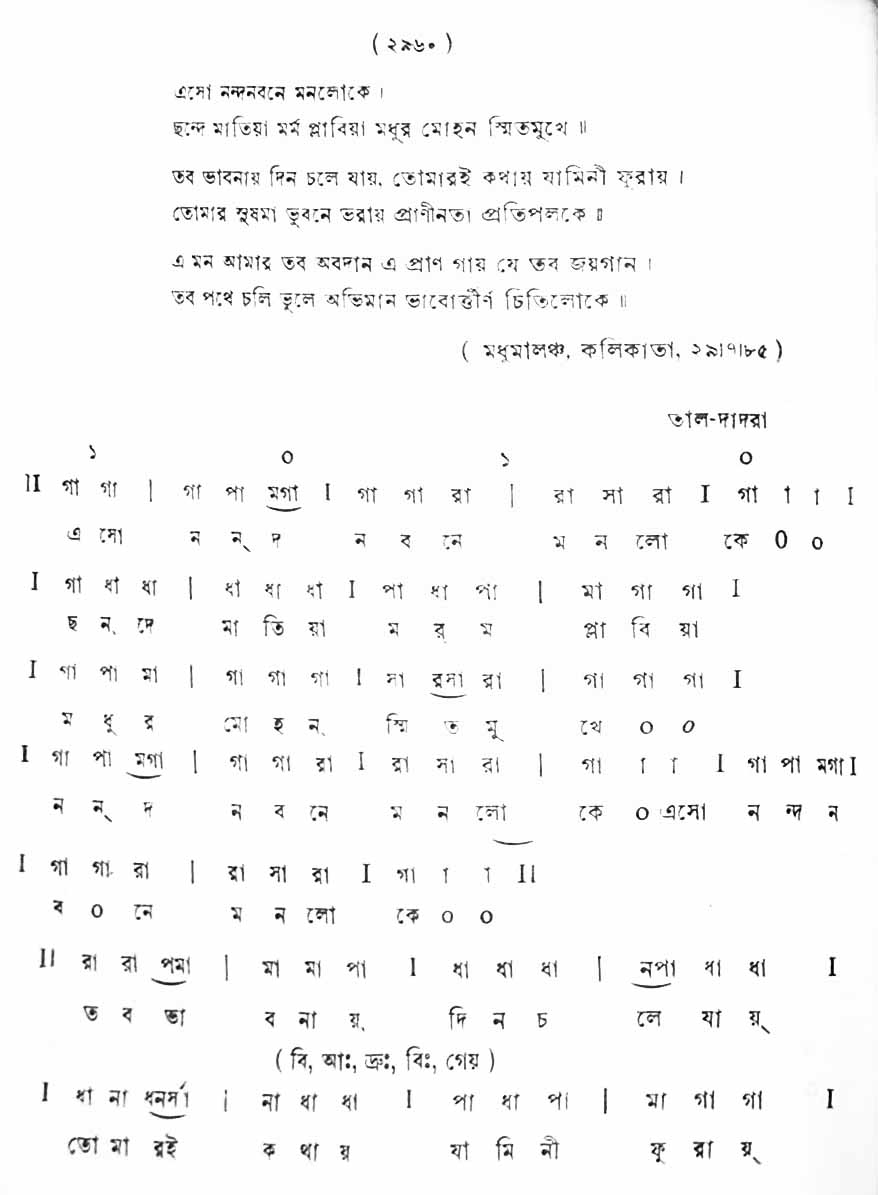 ( ২৯৬০ )
এসো নন্দনবনে মনলোকে ।
ছন্দে মাতিয়া মর্ম প্লাবিয়া মধুর মোহন স্মিতমুখে ॥
তব ভাবনায় দিন চলে যায়, তোমারই কথায় যামিনী ফুরায় ।
তোমার সুষমা ভুবনে ভরায় প্রাণীনতা প্রতিপলকে ॥
এ মন আমার তব অবদান এ প্রাণ গায় যে তব জয়গান ।
তব পথে চলি ভুলে অভিমান ভাবোত্তীর্ণ চিতিলোকে ॥
( মধুমালঞ্চ, কলিকাতা, ২৯।৭।৮৫ )
তাল-দাদরা
১ ০ ১ ০
II গা গা | গা পা মগা I গা গা রা | রা সা রা I গা া া I
এ সো ন ন্ দ ন ব নে ম ন লো কে 0 ০
I গা ধা ধা | ধা ধা ধা I পা ধা পা | মা গা গা I
ছ ন্ দে মা তি য়া ম র্ ম প্লা বি য়া
I গা পা মা | গা গা গা I সা রসা রা | গা গা গা I
ম ধু র মো হ ন্ স্মি ত মু খে ০ ০
I গা পা মগা | গা গা রা I রা সা রা | গা া া I গা পা মগা I
ন ন্ দ ন ব নে ম ন লো কে ০ এসো ন ন্দ ন
I গা গা রা | রা সা রা I গা া া II
ব ০ নে ম ন লো কে ০ ০
II রা রা পমা | মা মা পা I ধা ধা ধা | নপা ধা ধা I
ত ব ভা ব না য়্ দি ন চ লে যা য়্
( বি, আঃ, দ্রুঃ, বিঃ, গেয় )
I ধা না ধনর্সা | না ধা ধা I পা ধা পা | মা গা গা I
তো মা রই ক থা য় যা মি নী ফু রা য়্